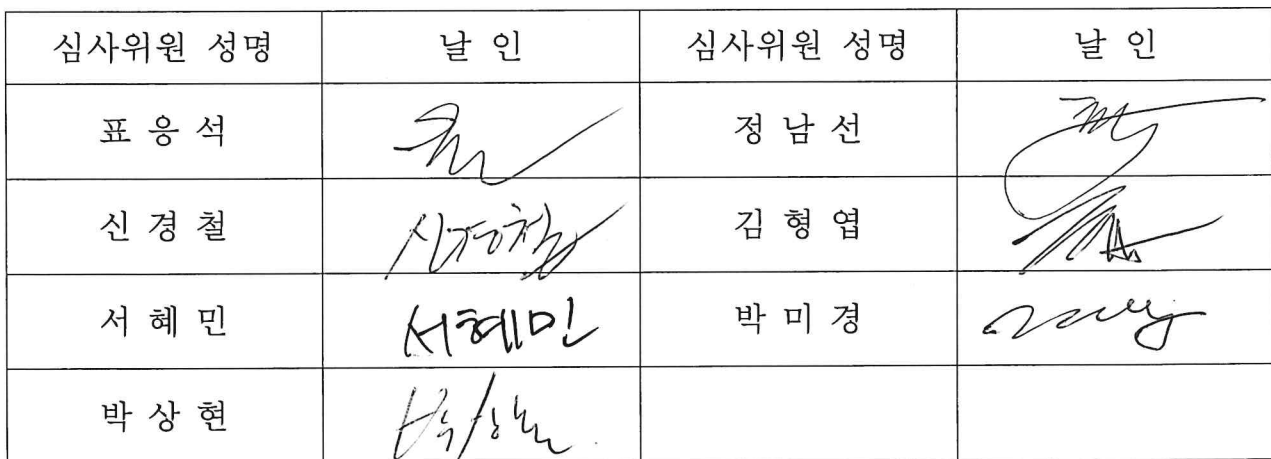 심사위원 성명 날 인 심사위원 성명 날 인
표 응 석 정 남 선
신 경 철 신경철 김 형 엽
서 혜 민 서혜민 박 미 경
박 상 현